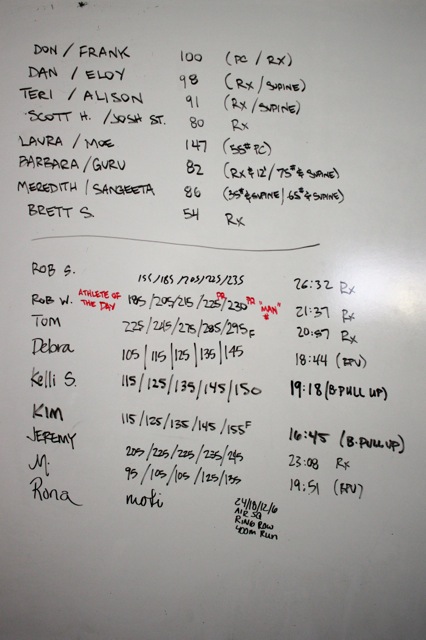 DON / FRANK 100 (PC / RX)
DAN / ELOY 98 (RX / SUPINE)
TERI / ALISON 91 (RX / SUPINE)
SCOTT H. / JOSH ST. 80 RX
LAURA / MOE 147 (55# PC)
BARBARA / GURU 82 (RX & 12" / 75# & SUPINE)
MEREDITH / SANGEETA 86 (35# & SUPINE / 65# & SUPINE)
BRETT S. 54 RX
ROB S. 155 / 185 / 205 / 225 / 235 26:32 Rx
ROB W. ATHLETE OF THE DAY 185 / 205 / 215 / 225 PR / 230 PR "MAN" 21:37 Rx
TOM 225 / 245 / 275 / 285 / 295 F 20:57 Rx
Debra 105 / 115 / 125 / 135 / 145 18:44
Kelli S. 115 / 125 / 135 / 145 / 150 19:18 (B. PULL UP)
KIM 115 / 125 / 135 / 145 / 155 F 16:45 (B. PULL UP)
JEREMY 205 / 225 / 225 / 235 / 245 23:08 Rx
M. 95 / 105 / 105 / 125 / 135 19:51
Rona
24/18/12/6
AIR SQ
RING ROW
400m RUN